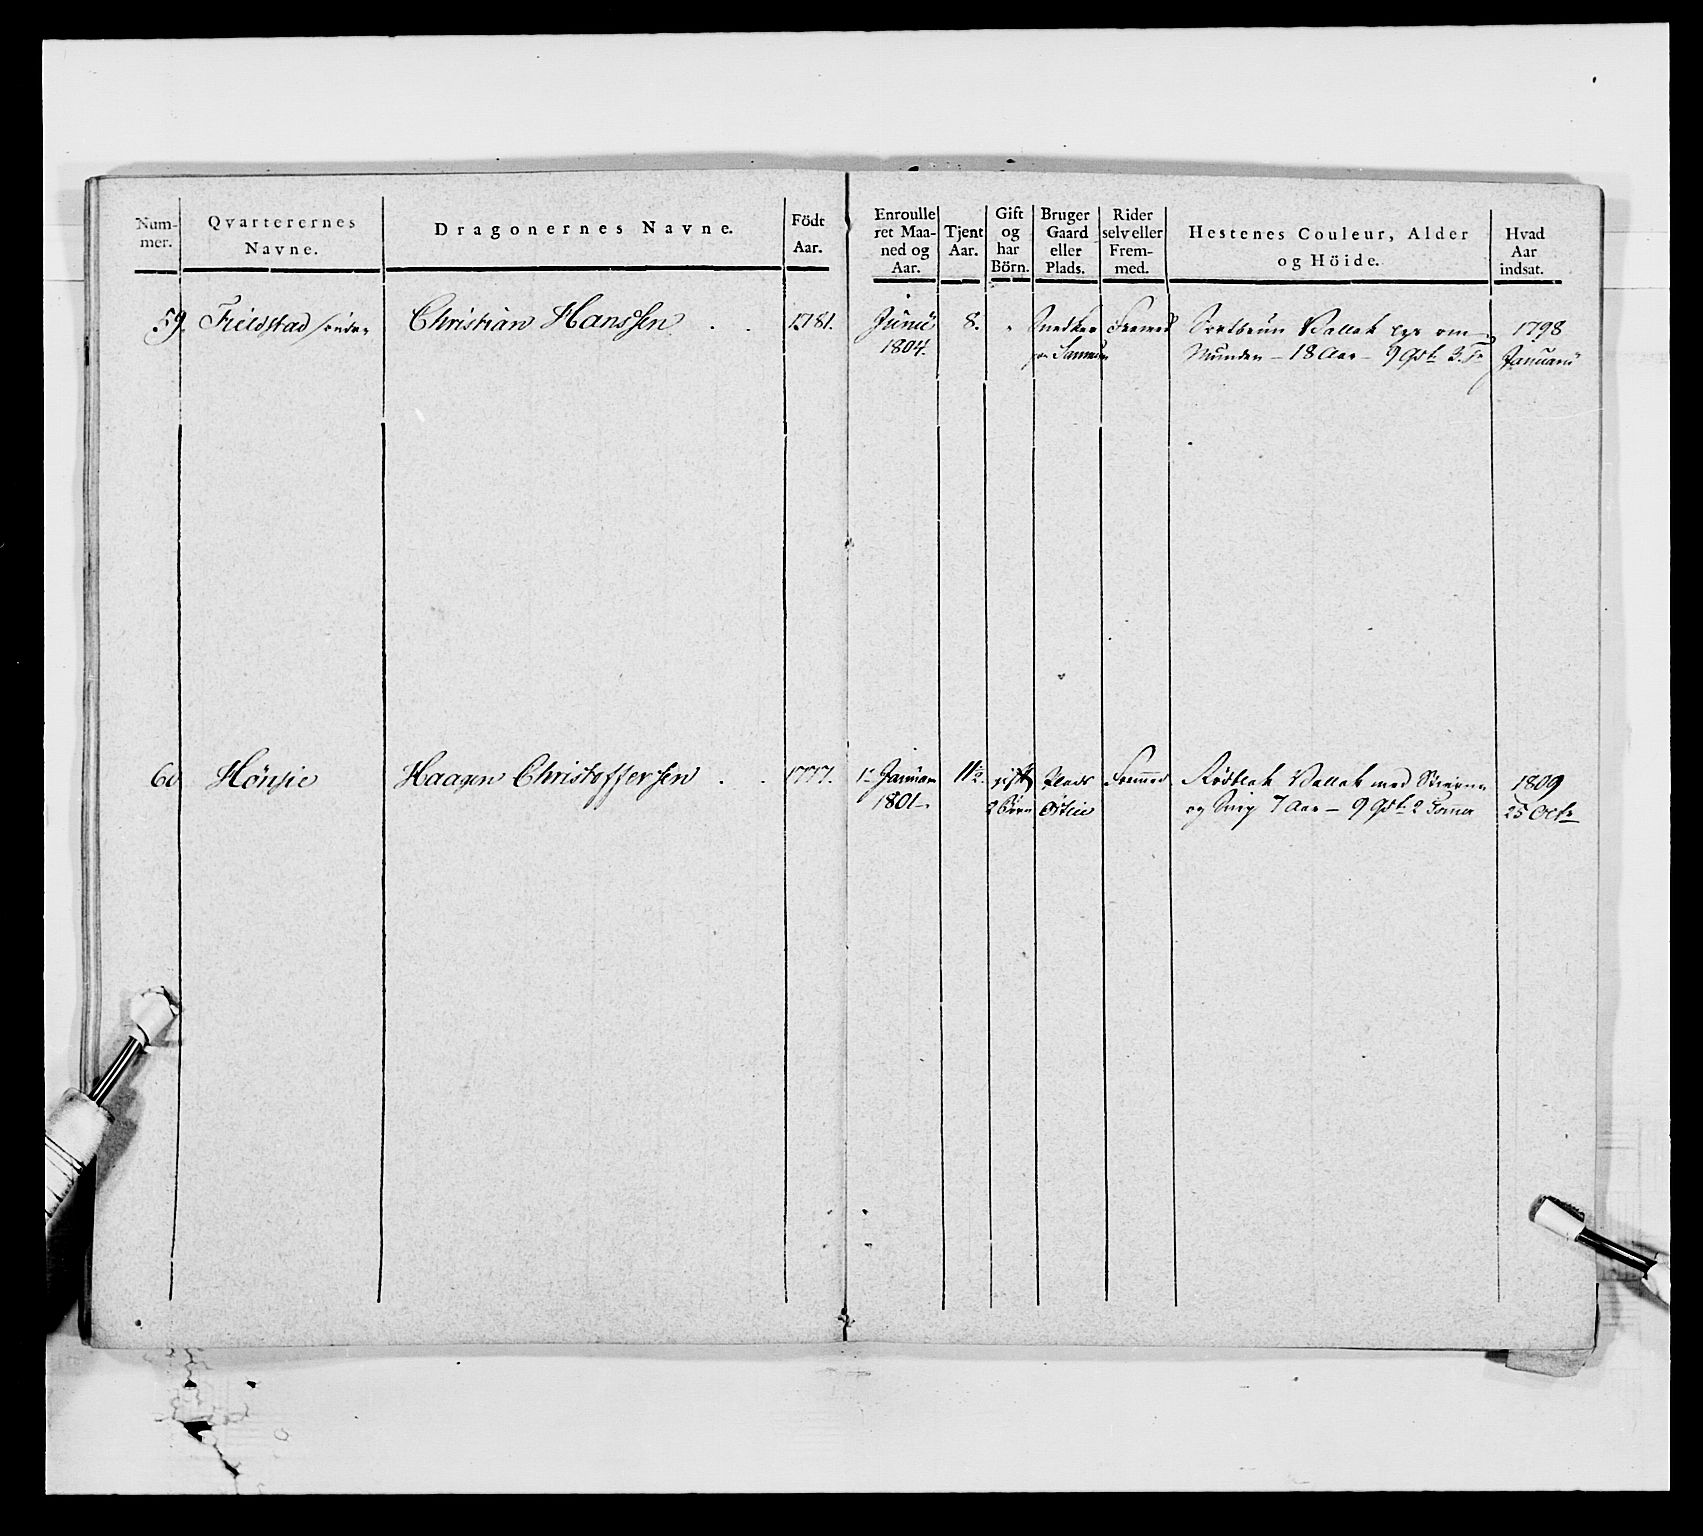 Num-
mer.
Qvarterernes
Navne.
Dragonernes Navne.
Födt
Aar.
Enroulle
ret Maa-
ned og
Aar.
Tjent
Aar.
Gift
og
har
Börn.
Bruger
Gaard
eller
Plads.
Rider
selv eller
Frem-
med.
Hestenes Couleur, Alder
og Höide.
Hvad
Aar
indsat.
59. Fieldstad söndre Christian Hanssen . . 1781. Junii 8. " Snedker Fremed Sortbrun Vallak lys om 1798
1804. Munden - 18 Aar - 9 Qvt 3. Januarii
60 Hönsie Haagen Christoffersen . . 1777. 1te Januarii 11½ gift Plads Fremmed Rödblak Vallak med Stierne 1809
1801. 2 Börn Östlie og Snip 7 Aar - 9 Qvt 2 Tommer 25 Octr